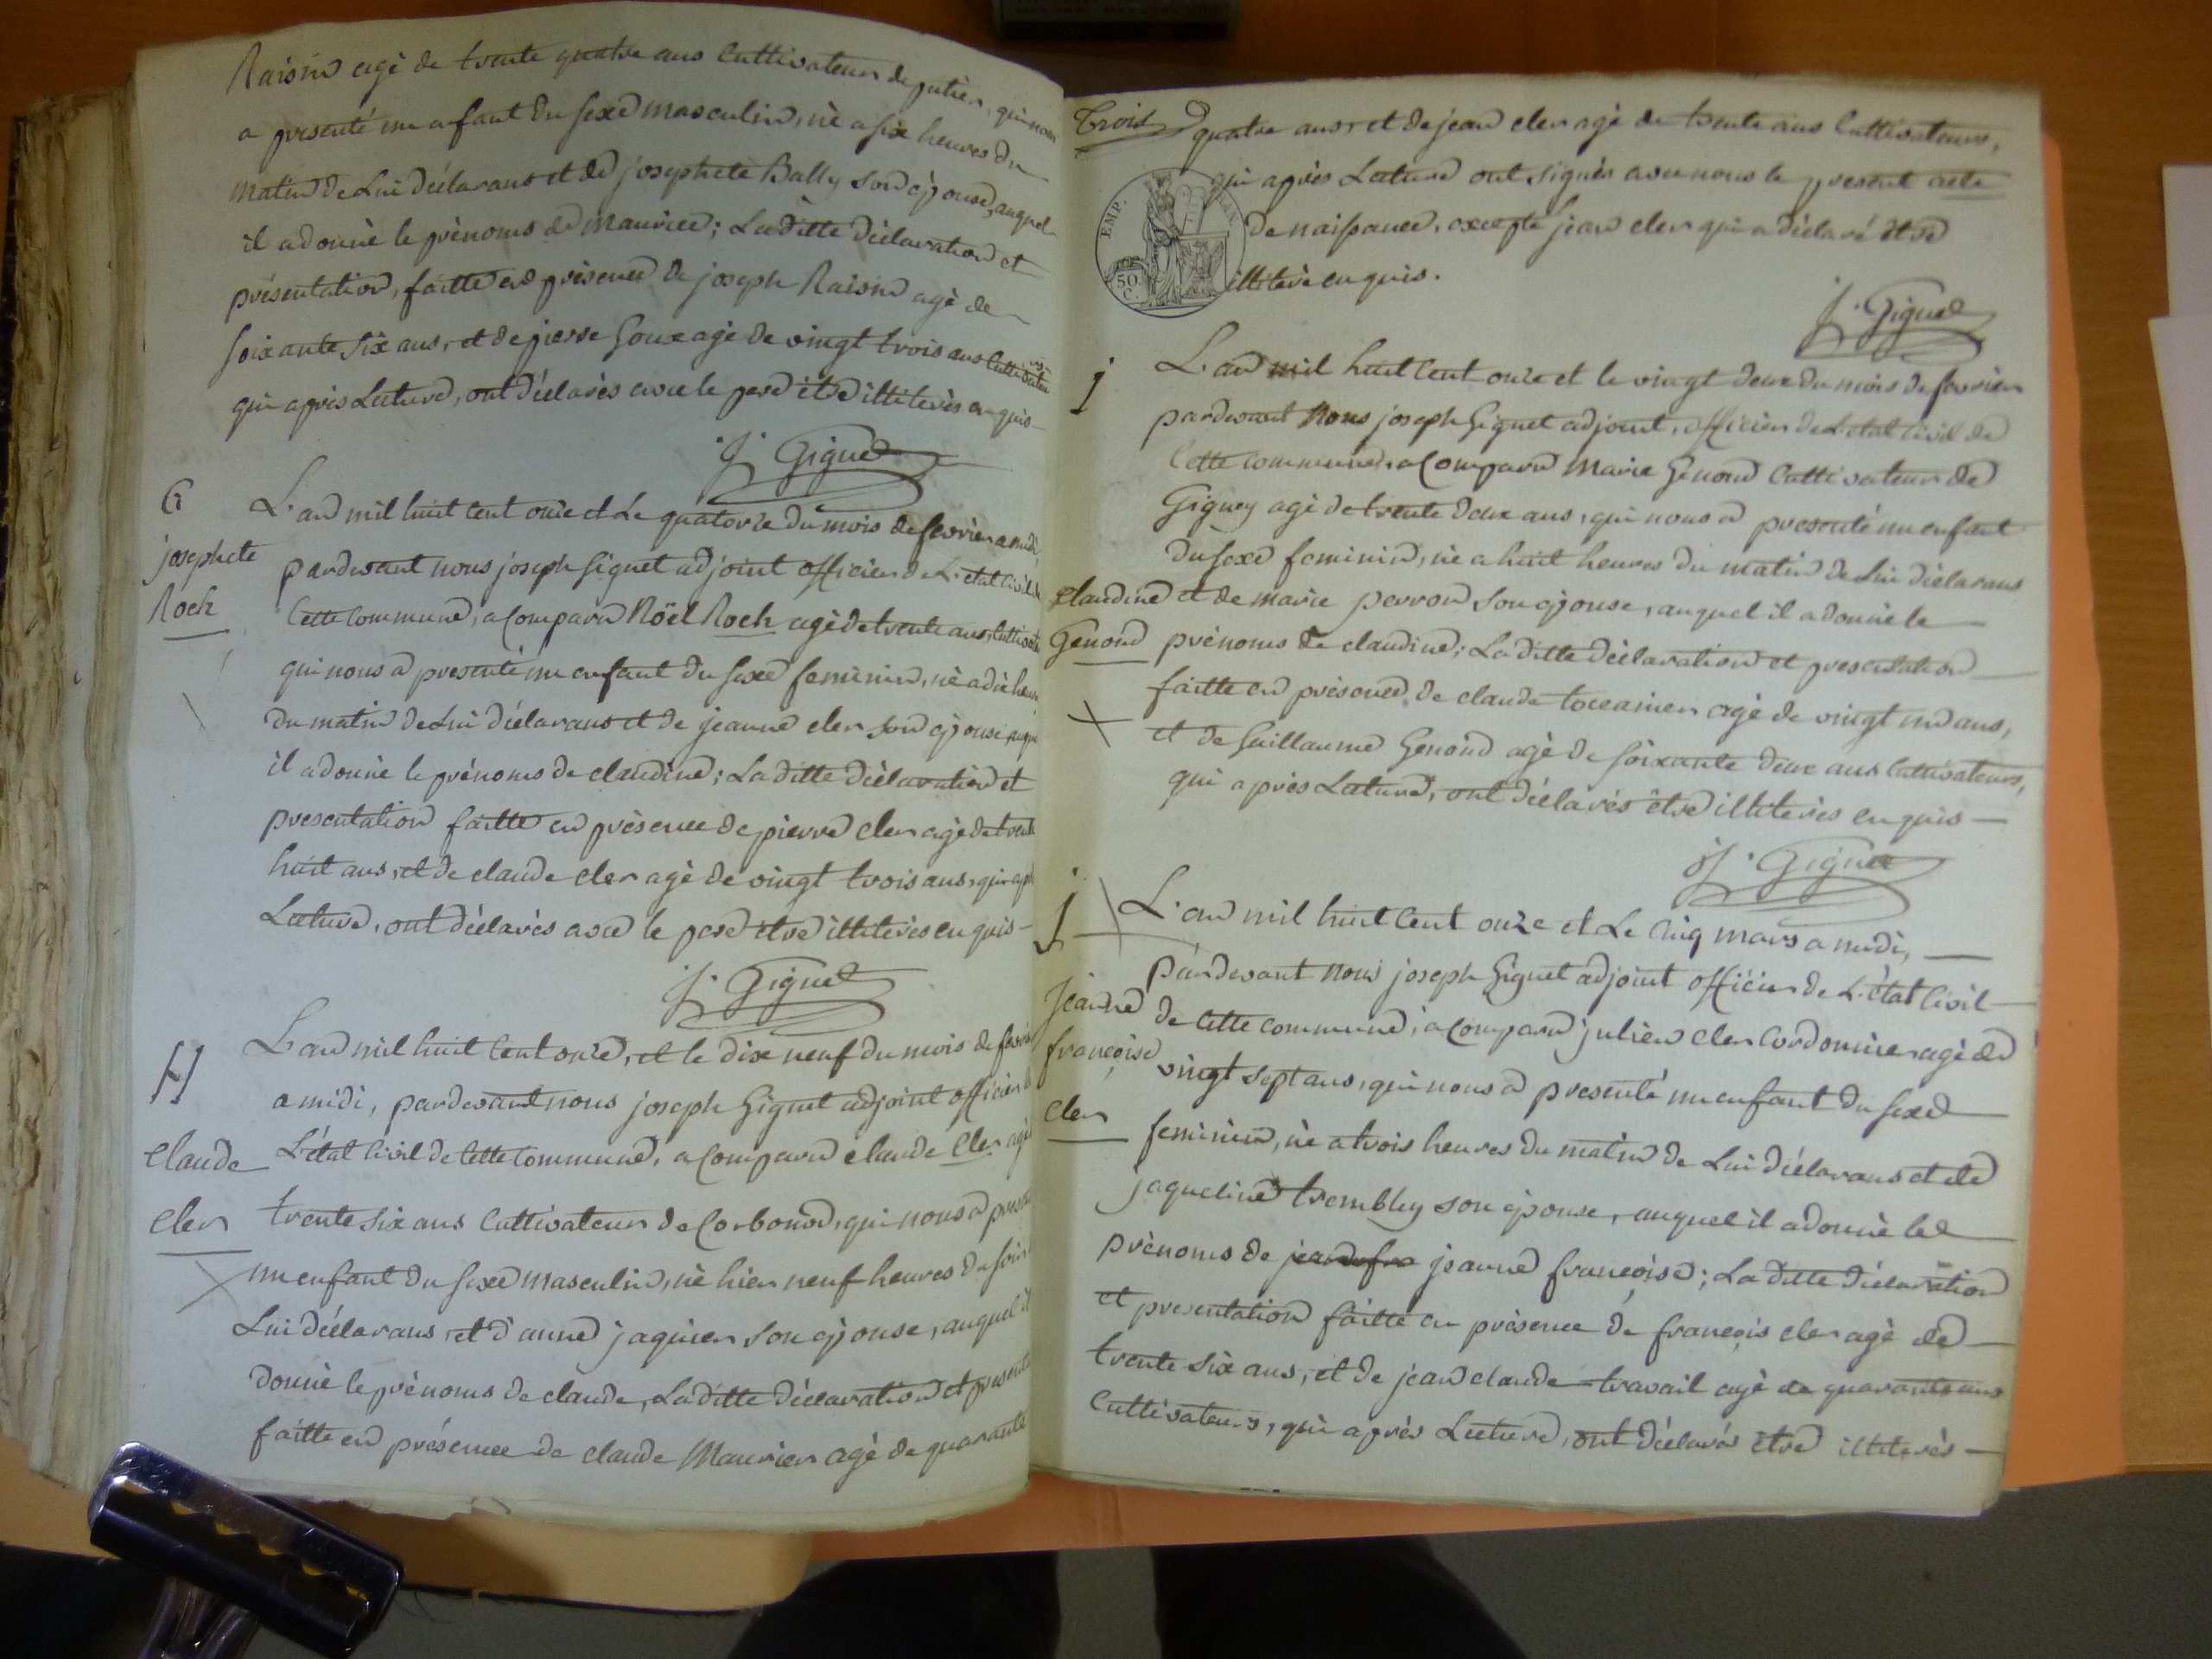 Raisin agè de trente quatre ans Cultivateur de putier, qui nous
a presenté un enfant du sexe masculin, nè a six heures du
matin de Lui déclarans et de josephete Bally son èpouse, auquel
il a donnè le prènoms de Maurice; Laditte dèclaration et
prèsentation, faitte en prèsence de joseph Raisin agè de
soixante six ans, et de pierre Goux agè de vingt trois ans Cultivateurs
qui après Lecture, ont dèclarès avec le pere être illiterès enquis
J. Giguet
G
josephete
Roch
L'an mil huit cent onze et Le quatorze du mois de fevrier a midi
pardevant nous joseph Giguet adjoint officier de L'etat Civil de
Cette Commune, a Comparu Nöel Roch agè de trente ans, Cultivateur
qui nous a presenté un enfant du sexe feminin, nè a dix heures
du matin de Lui dèclarans et de jeanne cler son èpouse auquel
il a donnè le prènoms de claudine; La ditte dèclaration et
presentation faitte en prèsence de pierre cler agè de trente
huit ans, et de claude cler agè de vingt trois ans, qui après
Lecture, ont dèclarès avec le pere être illiterès enquis -
J. Giguet
H
Claude
Cler
L'an mil huit Cent onze, et le dix neuf du mois de fevrier
a midi, pardevant nous joseph Giguet adjoint officier de
L'état Civil de Cette Commune, a Comparu claude Cler agè
trente six ans Cultivateur de Corbonod, qui nous a presenté
un enfant du sexe masculin, nè hier neuf heures du soir
Lui dèclarans, et d'anne jaquier son èpouse, auquel il
donnè le prènoms de claude, Laditte dèclaration et presentation
faitte en présence de claude Maurier agè de quarante
Trois
quatre ans, et de jean cler agè de trente ans Cultivateurs,
qui après Lecture ont signès avec nous le present acte
de naissance, excepté jean cler qui a dèclaré être
illiterè enquis.
EMP.
50
C.
J. Giguet
j
Claudine
Genond
L'an mil huit Cent onze et le vingt deux du mois de fevrier
pardevant Nous joseph Giguet adjoint, officier de L'etat Civil de
Cette Commune, a Comparu Marie Genond Cultivateur de
Gigney agè de trente deux ans, qui nous a presenté un enfant
du sexe feminin, nè a huit heures du matin de Lui dèclarans
et de marie perron son èpouse, auquel il a donnè le
prènoms de claudine; La ditte dèclaration et presentation
faitte en prèsence, de claude tocanier agè de vingt un ans,
et de Guillaume Genond agè de soixante deux ans Cultivateurs,
qui après Lecture, ont dèclarès être illiterès enquis -
J. Giguet
j
Jeanne
françoise
Cler
L'an mil huit Cent onze et Le Cinq mars a midi,
Pardevant nous joseph Giguet adjoint officier de L'état Civil
de Cette Commune, a Comparu julien cler Cordonnier agè de
vingt sept ans, qui nous a presenté un enfant du sexe
feminin, nè a trois heures du matin de Lui déclarans et de
jaqueline trembley son èpouse, auquel il a donnè les
prènoms de jean fra jeanne françoise; La ditte dèclaration
et presentation faitte en prèsence de françois cler agè de
trente six ans, et de jean claude travail agè de quarante ans
Cultivateurs, qui après Lecture, ont dèclarés être illiterès -